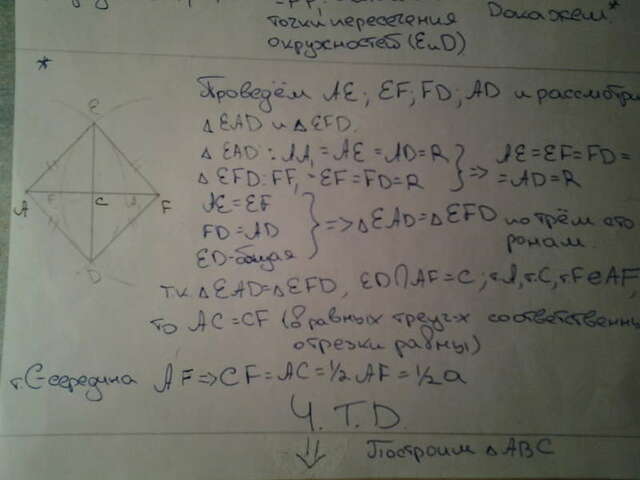 точки пересечения Докажем:*
окружностей (E и D)
*
Проведём AE; EF; FD; AD и рассмотри
△EAD и △EFD.
△EAD: AA₁ = AE = AD = R } => AE = EF = FD =
△EFD: FF₁ = EF = FD = R = AD = R
AE = EF
FD = AD } => △EAD = △EFD по трём сто
ED - общая ронам.
т.к △EAD = △EFD, ED∩AF = C; т.A, т.C, т.F∈AF,
то AC = CF (в равных треуг-х соответственны
отрезки равны)
т.C - середина AF => CF = AC = 1/2 AF = 1/2 a
Ч.Т.D.
⇓ Построим △ABC
E
A
C
F
D